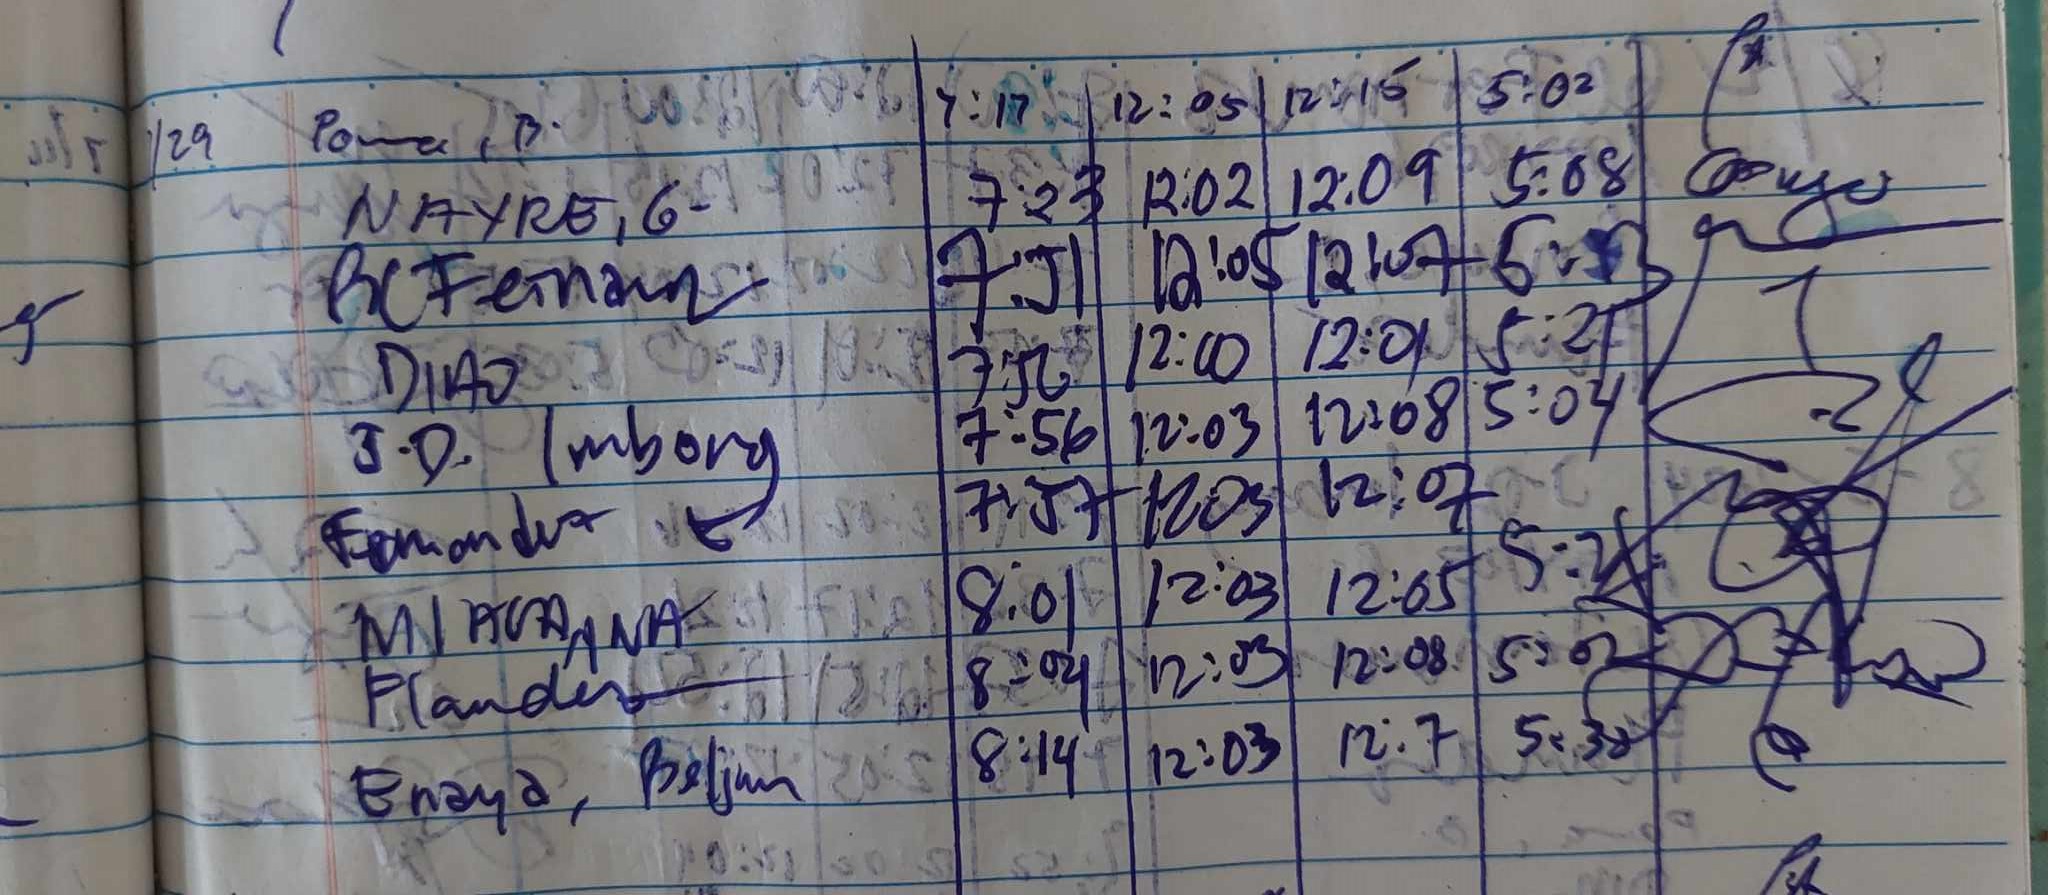 1/29 Poma, B. 7:17 12:05 12:15 5:02
NAYRE, G- 7:23 12:02 12:09 5:08
BCFernan 7:51 12:05 12:07
DIAO 7:56 12:00 12:01 5:21
J.D. Imborg 7:56 12:03 12:08 5:04
Fernandez 7:57 1203 12:07
8:01 12:03 12:05
Flander 8:04 12:03 12:08 5:02
Enaya, Beljun 8:14 12:03 12:7 5:30